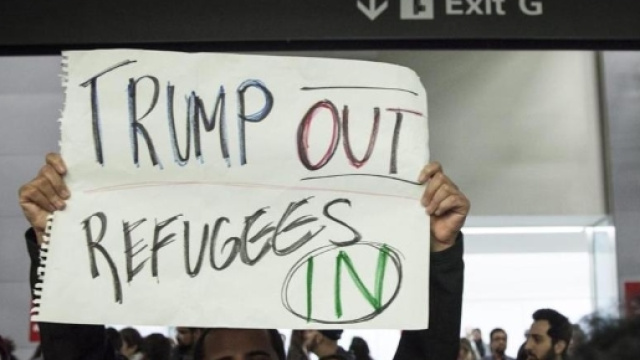 Exit G
TRUMP OUT
REFUGEES
IN